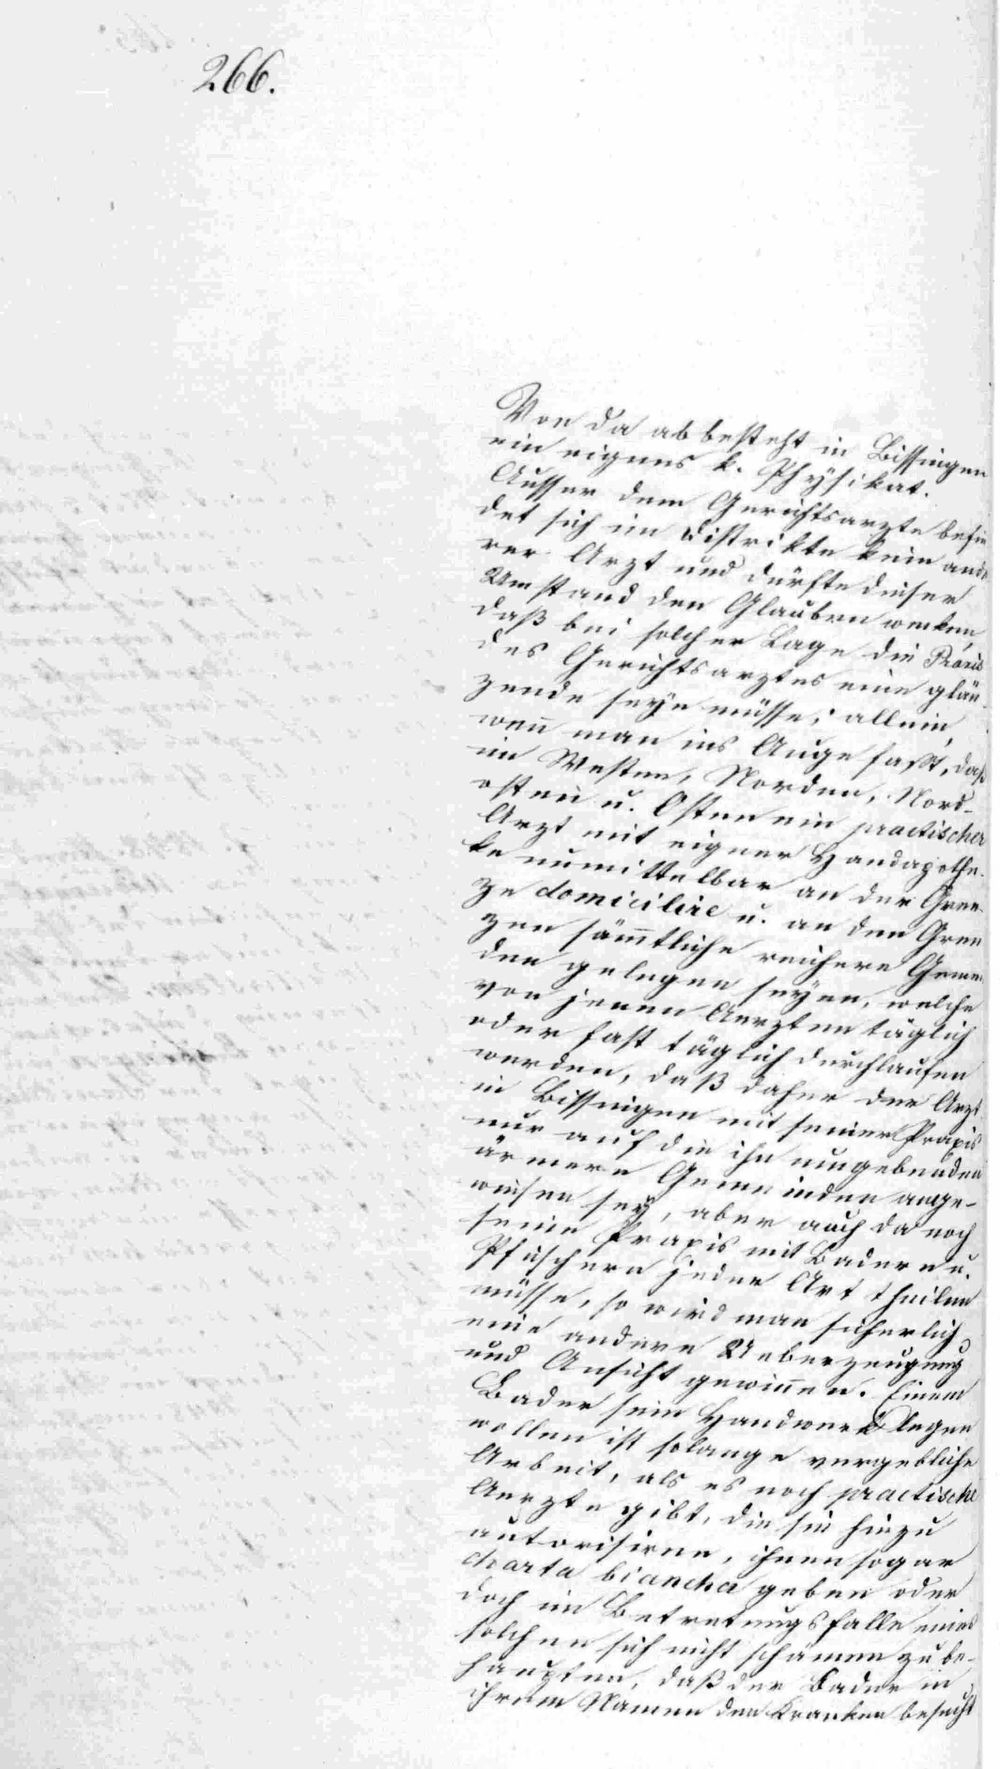 266.
Von da ab besteht in Bissingen
ein eignes k. Physikat.
Ausser dem Gerichtsarzte befin
det sich im Distrikte kein ande
rer Arzt und dürfte dieser
Umstand den Glauben wecken,
daß bei solcher Lage die Praxis
des Gerichtsarztes eine glän-
zende seyn müsse; allein,
wen̄ man ins Auge faßt, daß
im Westen, Norden, Nord-
osten u. Osten ein practischer
Arzt mit eigner Handapothe-
ke unmittelbar an der Gren-
ze domicilire u. an den Gren
zen säm̄tliche reichere Gemein
den gelegen seyen, welche
von jenen Aerzten täglich
oder fast täglich durchlaufen
werden, daß daher der Arzt
in Bissingen mit seiner Praxis
nur auf die ihn umgebenden
ärmern Gemeinden ange-
wiesen sey, aber auch da noch
seine Praxis mit Badern u.
Pfuschern jeder Art theilen
müsse, so wird man sicherlich
eine andere Ueberzeugung
und Ansicht gewin̄en. Einem
Bader sein Handwerk legen
wollen ist solange vergebliche
Arbeit, als es noch practische
Aerzte gibt, die sie hiezu
autorisiren, ihnen sogar
charta biancha geben oder
doch im Betretungsfalle eines
solchen sich nicht schämen zu be-
haupten, daß der Bader in
ihrem Namen den Kranken besucht